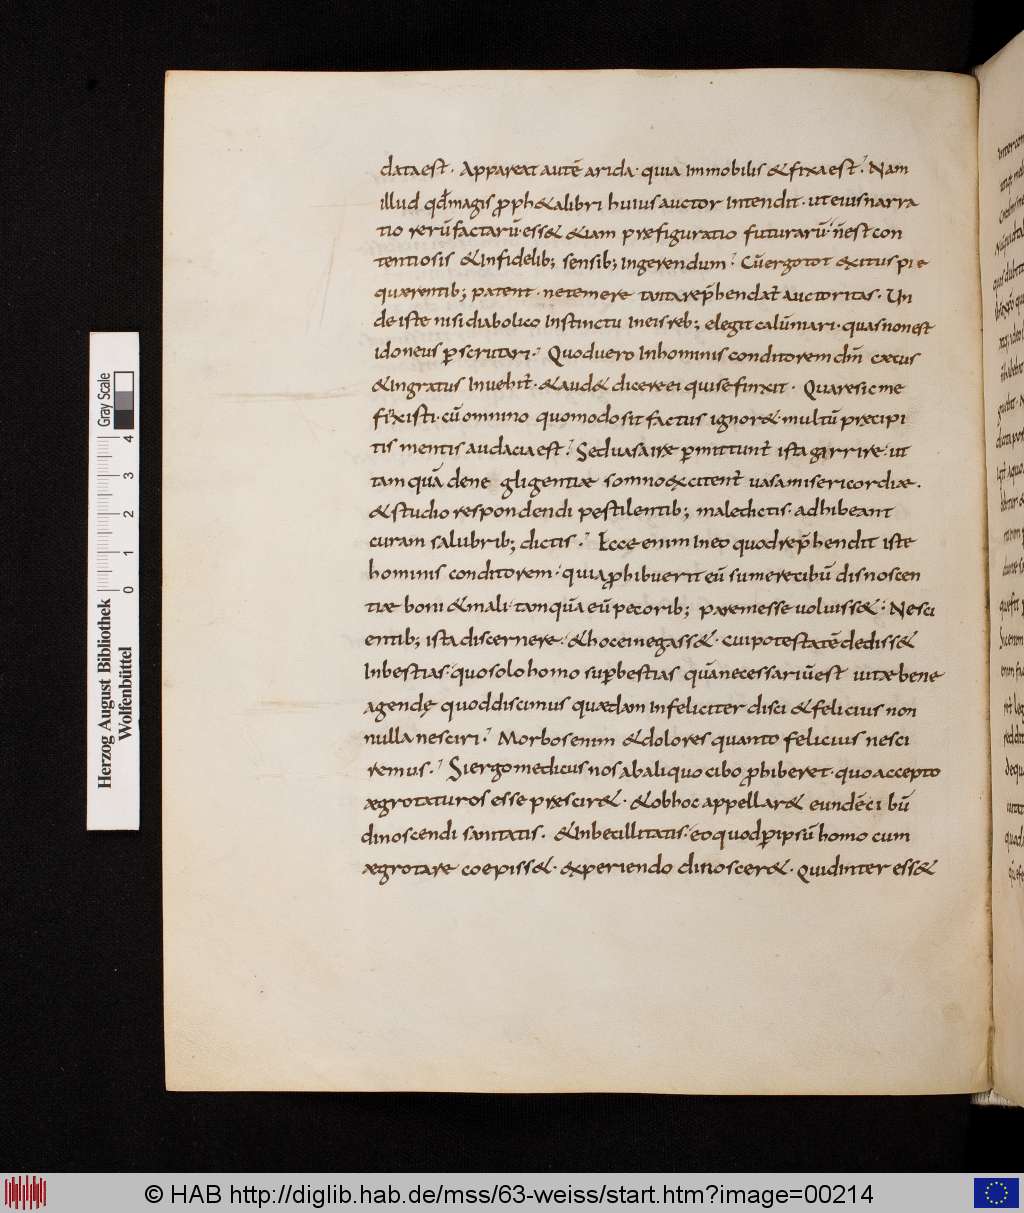 data est. Appareat autē arida. quia immobilis & fixa est. Nam
illud qđ magis ꝓph&alibri huius auctor intendit. ut eius narra
tio rerū factarū. ess& &iam præfiguratio futurarū. ñ est con
tentiosis &infidelib; sensib; ingerendum. Cū ergo tot exitus pie
quærentib; patent. ne temere tanta rep̄hendat̄ auctoritas. Un
de iste nisi diabolico instinctu in eis reb; elegit calūniari. quas non est
idoneus ꝑscrutari. Quod uero in hominis conditorem dm̄ cæcus
&ingratus inuehit̄. &aud& dicere ei qui se finxit. Quare sic me
finxisti. cū omnino quomodo sit factus ignor&. multū præcipi
tis mentis audacia est. Sed uasa iræ ꝑmittunt̄ ista garrire. ut
tamquā de ne gligentiæ somno excitent̄ uasa misericordiæ.
&studio respondendi pestilentib; maledictis. adhibeant
curam salubrib; dictis. Ecce enim in eo quod rep̄hendit iste
hominis conditorem. quia ꝓhibuerit eū sumere cibū dis noscen
tiæ boni &mali. tamquā eū pecorib; parem esse uoluiss&. Nesci
entib; ista discernere. &hoc ei negass&. cui potestatē dediss&
in bestias. quo solo homo suꝑ bestias quā necessariū est uitæ bene
agendę quod discimus quædam infeliciter disci &felicius non
nulla nesciri. Morbos enim &dolores quanto felicius nesci
remus. Si ergo medicus nos ab aliquo cibo ꝓhiberet. quo accepto
ægrotaturos esse præscir&. &ob hoc appellar& eundē ci bū
dinoscendi sanitatis. &inbecillitatis. eo quod ꝑ ipsū homo cum
ægrotare coepiss&. experiendo dinoscer&. quid inter ess&
Herzog August Bibliothek
Wolfenbüttel
0 1 2 3 4
Gray Scale
© HAB http://diglib.hab.de/mss/63-weiss/start.htm?image=00214